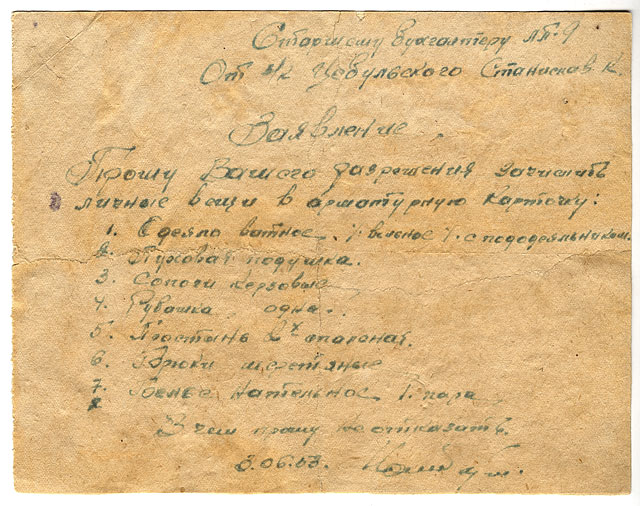 Старшему бухгалтеру ЛП-9
От з/к Цебульского Станислав К.
Заявление
Прошу Вашего разрешения зачислить
личные вещи в арматурную карточку:
1. Одеяло ватное /. зеленое /. с пододеяльником.
2. Пуховая подушка.
3. Сапоги керзовые
4. Рубашка одна.
5. Простынь 2х спальная.
6. Брюки шерстяные
7. Белье нательное 1. пара
В чем прошу не отказать.
3.06.53.